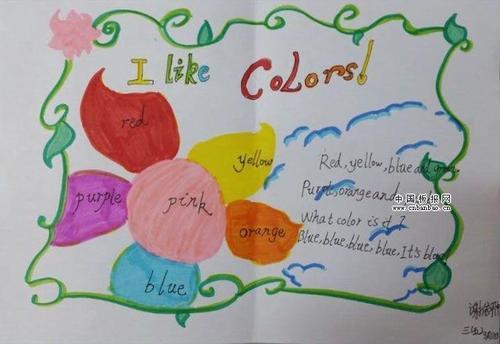 I like Colors!
red
yellow
purple
pink
orange
blue
Red, yellow, blue and green,
Purple, orange and
What color is it?
Blue, blue, blue, blue, It's blue
中国板报网
www.cnbanbao.cn
三(5)